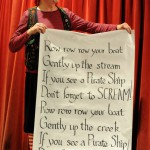 Row row row your boat
Gently up the stream
If you see a Pirate Ship
Don't forget to SCREAM!
Row row row your boat
Gently up the creek
If you see a Pirate Ship